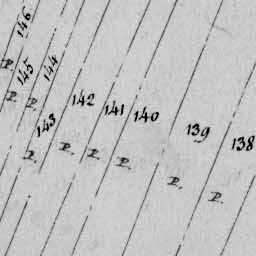 146
P.
145
P.
144
P.
143
P.
142
P.
141
P.
140
P.
139
P.
138
P.